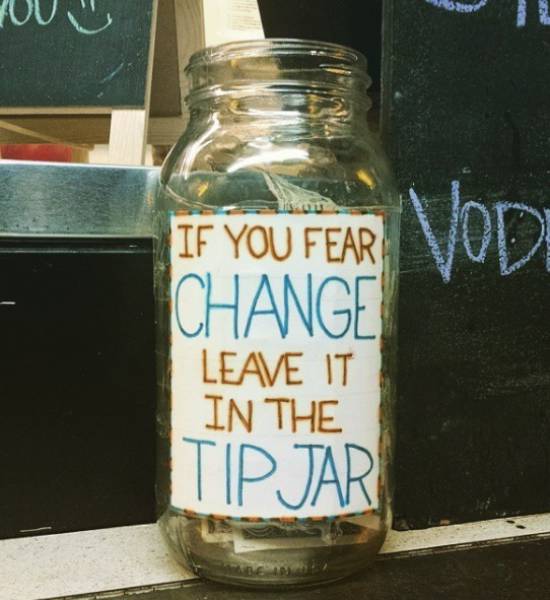 YOU
IF YOU FEAR
CHANGE
LEAVE IT
IN THE
TIP JAR
MADE IN U.S.A